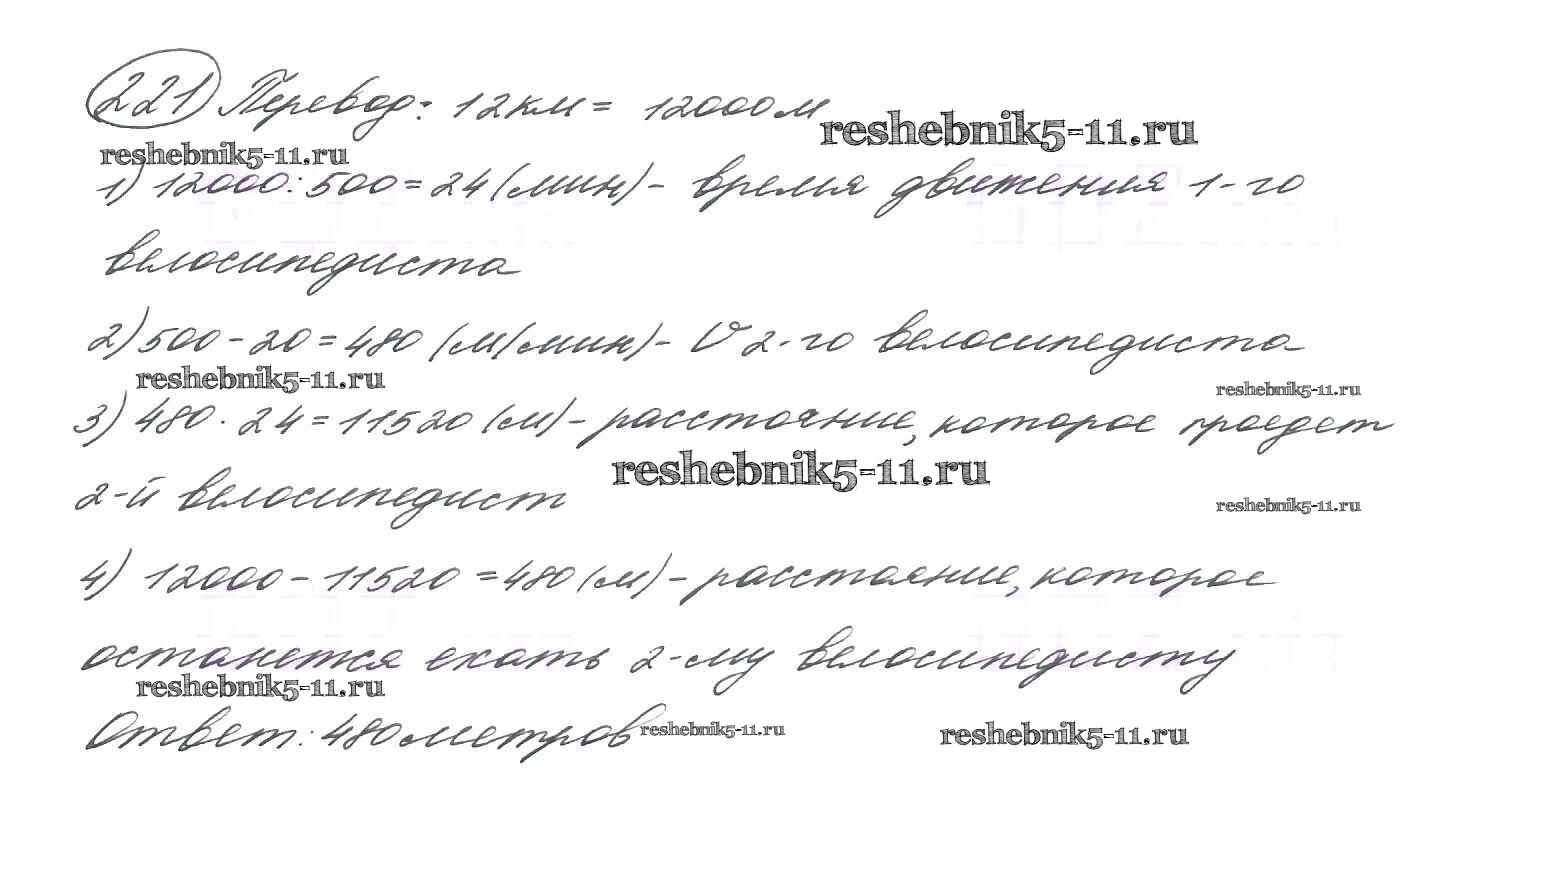 221 Перевод: 12км = 12000м
reshebnik5-11.ru
reshebnik5-11.ru
1) 12000:500=24(мин)- время движения 1-го
велосипедиста
2)500-20=480 (м/мин)- V 2-го велосипедиста
reshebnik5-11.ru
reshebnik5-11.ru
3) 480·24=11520(м)- расстояние, которое проедет
reshebnik5-11.ru
2-й велосипедист
reshebnik5-11.ru
4) 12000-11520=480(м)- расстояние, которое
останется ехать 2-му велосипедисту
reshebnik5-11.ru
Ответ: 480 метров
reshebnik5-11.ru
reshebnik5-11.ru